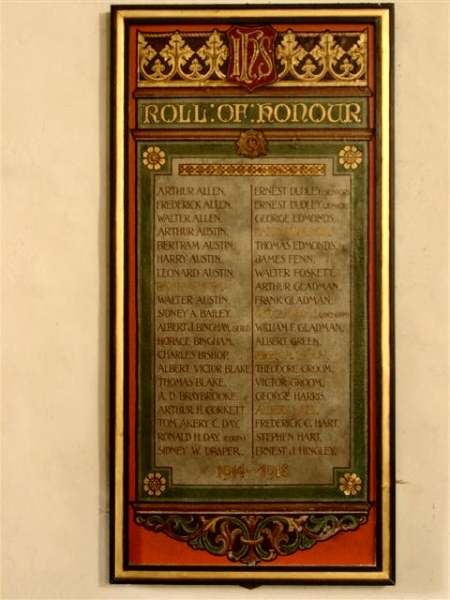 IHS
ROLL : OF : HONOUR
ARTHUR ALLEN.
FREDERICK ALLEN.
WALTER ALLEN.
ARTHUR AUSTIN.
BERTRAM AUSTIN.
HARRY AUSTIN.
LEONARD AUSTIN.
WALTER AUSTIN.
SIDNEY A. BAILEY.
ALBERT J. BINGHAM,
HORACE BINGHAM.
CHARLES BISHOP.
ALBERT VICTOR BLAKE
THOMAS BLAKE.
A. D. BRAYBROOKE.
ARTHUR H. CORKETT
TOM AKERY C. DAY.
RONALD H. DAY.
SIDNEY W. DRAPER.
ERNEST DUDLEY.
ERNEST DUDLEY.
GEORGE EDMONDS.
THOMAS EDMONDS.
JAMES FENN.
WALTER FOSKETT.
ARTHUR GLADMAN.
FRANK GLADMAN.
WILLIAM F. GLADMAN.
ALBERT GREEN.
THEODORE GROOM.
VICTOR GROOM.
GEORGE HARRIS.
FREDERICK C. HART
STEPHEN HART.
ERNEST J. HINGLEY.
1914-1918